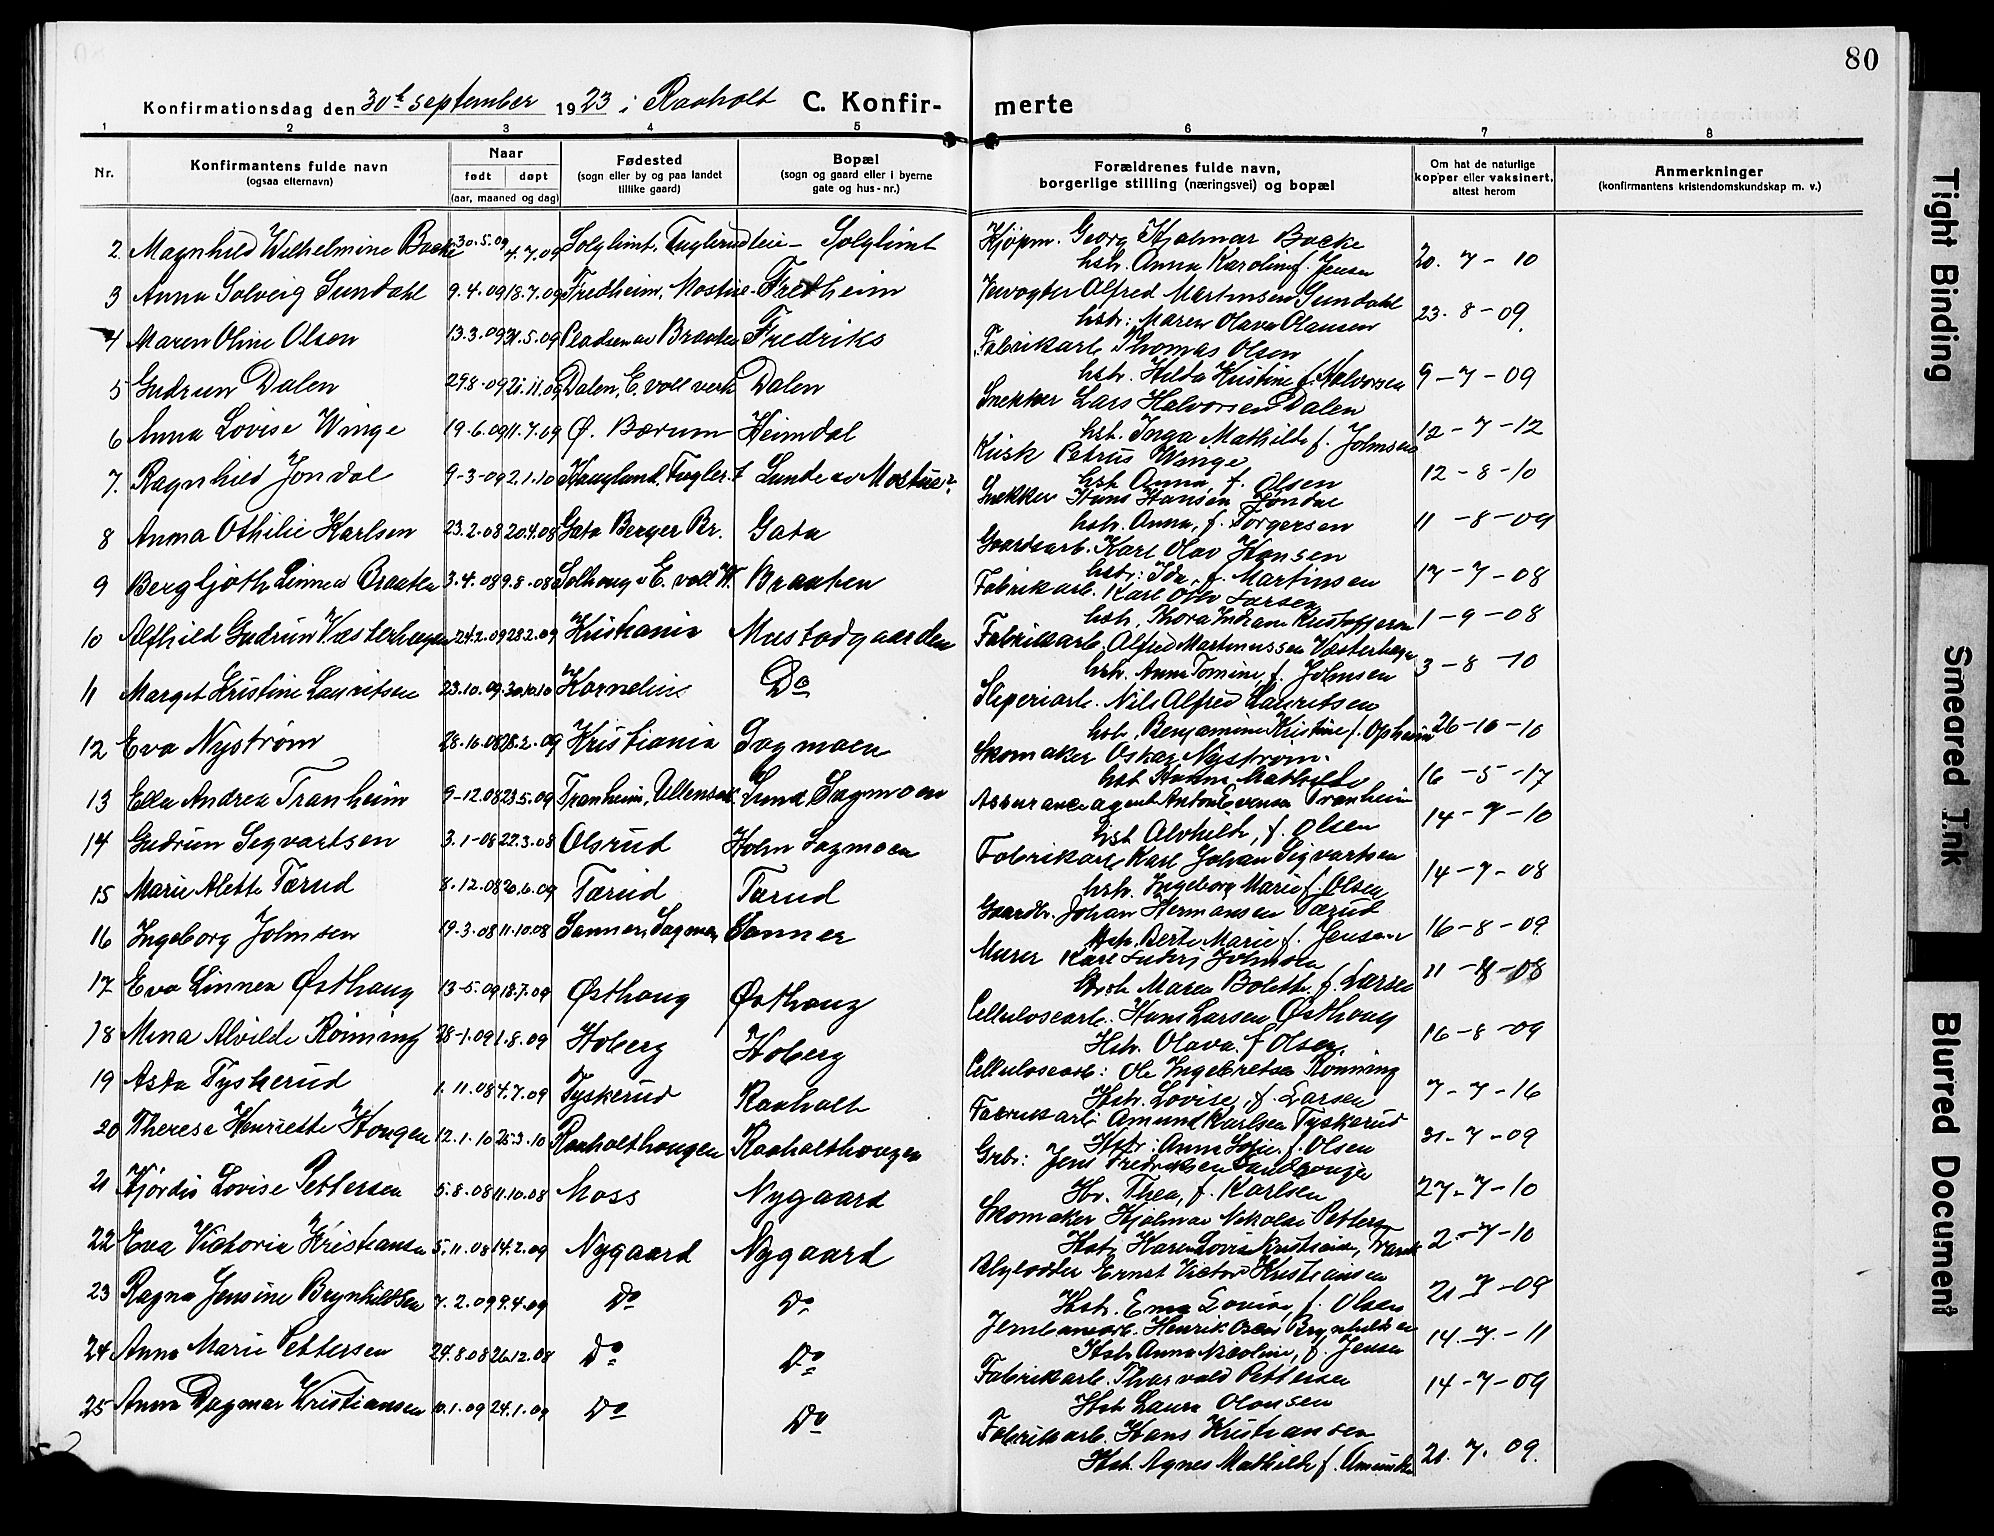 80
Konfirmationsdag den 30t september 1923 i Raaholt C. Konfir- merte
1 2 3 4 5 6 7 8
Nr.
Konfirmantens fulde navn
(ogsaa efternavn)
Naar
født døpt
(aar, maaned og dag)
Fødested
(sogn eller by og paa landet
tillike gaard)
Bopæl
(sogn og gaard eller i byerne
gate og hus-nr.)
Forældrenes fulde navn,
borgerlige stilling (næringsvei) og bopæl
Om hat de naturlige
kopper eller vaksinert,
attest herom
Anmerkninger
(konfirmantens kristendomskundskap m. v.)
2 Magnhild Wilhelmine Backe 30.5.09 4.7.09 Solglimt, Fuglerudteie - Solglimt Kjøpm. Georg Hjalmar Backe
hstr. Anna Karoline f. Jensen 20. 7 - 10
3 Anna Solveig Sundahl 9.4.09 18.7.09 Fredheim, Mostue - Fredheim Alfred Martinsen Sundahl
hstr: Maren Olava Olausen 23. 8 - 09.
4 Maren Oline Olsen 13.3.09 31.5.09 Braaten Fredriks Fabrikarb. Thomas Olsen
hstr. Hilda Kristine f. Halvorsen 9 - 7 - 09
5 Gudrun Dalen 29.8.09 21.11.09 Dalen, E. voll verk Dalen Snekker Lars Halvorsen Dalen
hst. Inga Mathilde f. Johnsen 12 - 7 - 12
6 Anna Lovise Winge 19.6.09 11.7.09 Ø. Bærum Heimdal Kusk Petrus Winge
hst Anna, f. Olsen 12 - 8 - 10
7. Ragnhild Jondal 9-3-09 2.1.10 Haugland, Fugler. Lunde av Mostue Snekker Hans Hansen Jondal
hstr. Anna, f. Torgersen 11 - 8 - 09
8 Anna Othilie Karlsen 23.2.08 20.4.08 Gata Berger Br. Gata Gaardsarb. Karl Olav Hansen
hstr: Ida, f. Martinsen 17 - 7 - 08
9 Bergljoth Linnea Braaten 3.4.08 9.8.08 Solhaug v E. voll V. Braaten Fabrikarb. Karl Larsen
hstr. Thora f. Kristoffersen 1 - 9 - 08
10 Alfhild Gudrun Vesterhaugen 24.2.09 28.2.09 Kristiania Mustadgaarden Fabrikarb. Alfred Martinussen Vesterhagen
hstr. Anna Tomine, f. Johnsen 3 - 8 - 10
11 Marget Kristine Lauritsen 23.10.09 30.10.10 Kornelius Do Sliperiarb. Nils Alfred Lauritsen
hst. Benjamine Kristine f. Opheim 26 - 10 - 10
12 Eva Nystrøm 28.10.08 28.2.09 Kristiania Sagmoen Skomaker Oskar Nystrøm.
hst Hanna Mathilde 16 - 5 - 17
13 Ella Andrea Tranheim 9-12.08 23.5.09 Tranheim, Ullensak. Lund Sagmoen Assuranceagent Anton Evensen Tranheim
hst Alvhilde, f. Olsen 14 - 7 - 10
14 Gudrun Segvartsen 3.1-08 22.3.08 Olsrud Holm Sagmoen Fabrikarb Karl Johan Sigvartsen
hstr. Ingeborg Marie f. Olsen 14 - 7 - 08
15 Marie Alette Tærud 8.12.08 20.6.09 Tærud Tærud Gaardbr. Johan Hermansen Tærud
Hstr. Berte Marie f. Jensen 16 - 8 - 09
16 Ingeborg Johnsen 19.3.08 11.10.08 Sanner, Sagmoen Sanner Murer Karl Johnsen
Hstr Maren Bolette. f. Larsen 11 - 8 - 08
17 Eva Linnea Østhaug 13-5.09 18.7.09 Østhaug Østhaug Cellulosearb. Hans Larsen Østhaug
Hstr. Olava f Olsen. 16 - 8 - 09
18 Mina Alvilde Rønning 28-1.09 1.8.09 Hoberg Hoberg Cellulosearb: Ole Ingebretsen Rønning
Hstr. Lovise, f. Larsen 7 - 7 - 16
19 Asta Tyskerud 1.11.08 4.7.09 Tyskerud Raaholt Fabrikarb: Amund Karlsen Tyskerud
Hstr: Anna Sofie, f. Olsen 31 - 7 - 09
20 Therese Henriette Haugen 12.1.10 25.3.10 Raaholthaugen Raaholthaugen Grbr: Jens Fredriksen
Hr. Thea, f. Karlsen 27 - 7 - 10
21 Hjørdis Lovise Pettersen 5.8.08 11.10.08 Moss Nygaard Skomaker Hjalmar Nikolai Petters
Hstr. Karen Lovise Kristiane, 2 - 7 - 10
22 Eva Victoria Kristiansen 5.11.08 14.2.09 Nygaard Nygaard Blylodder Ernst Victor Kristiansen
Hstr. Ema Lovise, f. Olsen 21 - 7 - 09
23 Ragna Jensine Brynhildsen 7.2.09 9.4.09 Do Do Jernbanearb. Henrik Oscar Brynhildsen
Hstr. Anna Nicoline, f. Jensen 14. 7. - 11
24 Anna Marie Pettersen 24.8.08 26.12.08 Do Do Fabrikarb. Tharvald Pettersen
Hstr Laura Olausen 14 - 7 - 09
25 Anna Dagmar Kristiansen 10.1.09 24.1.09 Do Do Fabrikarb. Hans Kristiansen
Hst. Agnes Mathilde f. Amundsen 21. 7. 09.
Tight Binding
Smeared Ink
Blurred Document